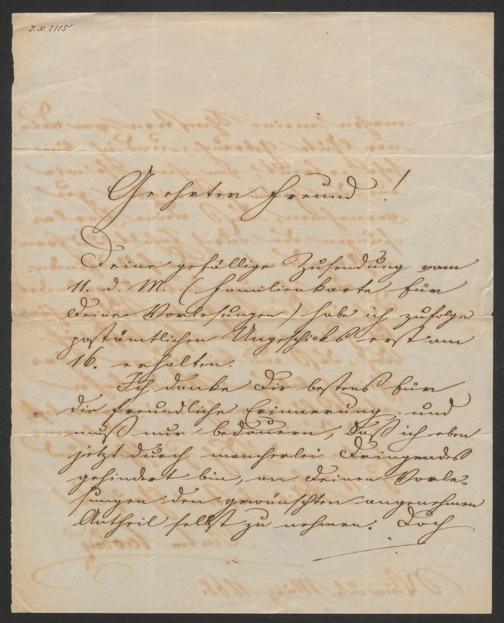 J.N. 2115
Geehrter Freund!
Deine gefällige Zusendung vom
11. d. M. (Familienkarte für
Deine Vorlesungen) hab ich zufolge
postämtlichen Ungeschicks erst am
16. erhalten.
Ich danke Dir bestens für
die freundliche Erinnerung und
muß nur bedauern, daß ich eben
jetzt durch mancherlei Dringendes
gehindert bin, an Deinen Vorle-
sungen den gewünschten angenehmen
Antheil selbst zu nehmen. Doch